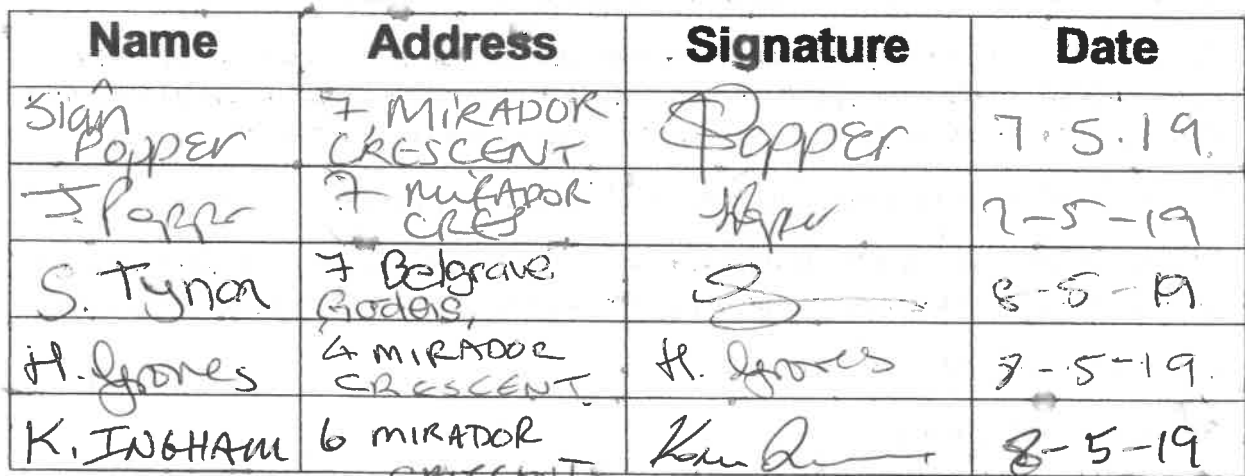 Name Address Signature Date
Siân Popper 7 MIRADOR CRESCENT SPopper 7.5.19.
J. Popper 7 MIRADOR CRES 7-5-19
S. Tynan 7 Belgrave 8-5-19
H. Groves 4 MIRADOR CRESCENT H. Groves 8-5-19.
K. INGHAM 6 MIRADOR CRESCENT 8-5-19